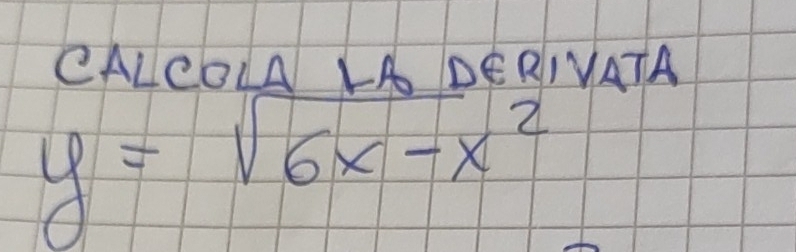 CALCOLA LA DERIVATA
y = √6x - x²